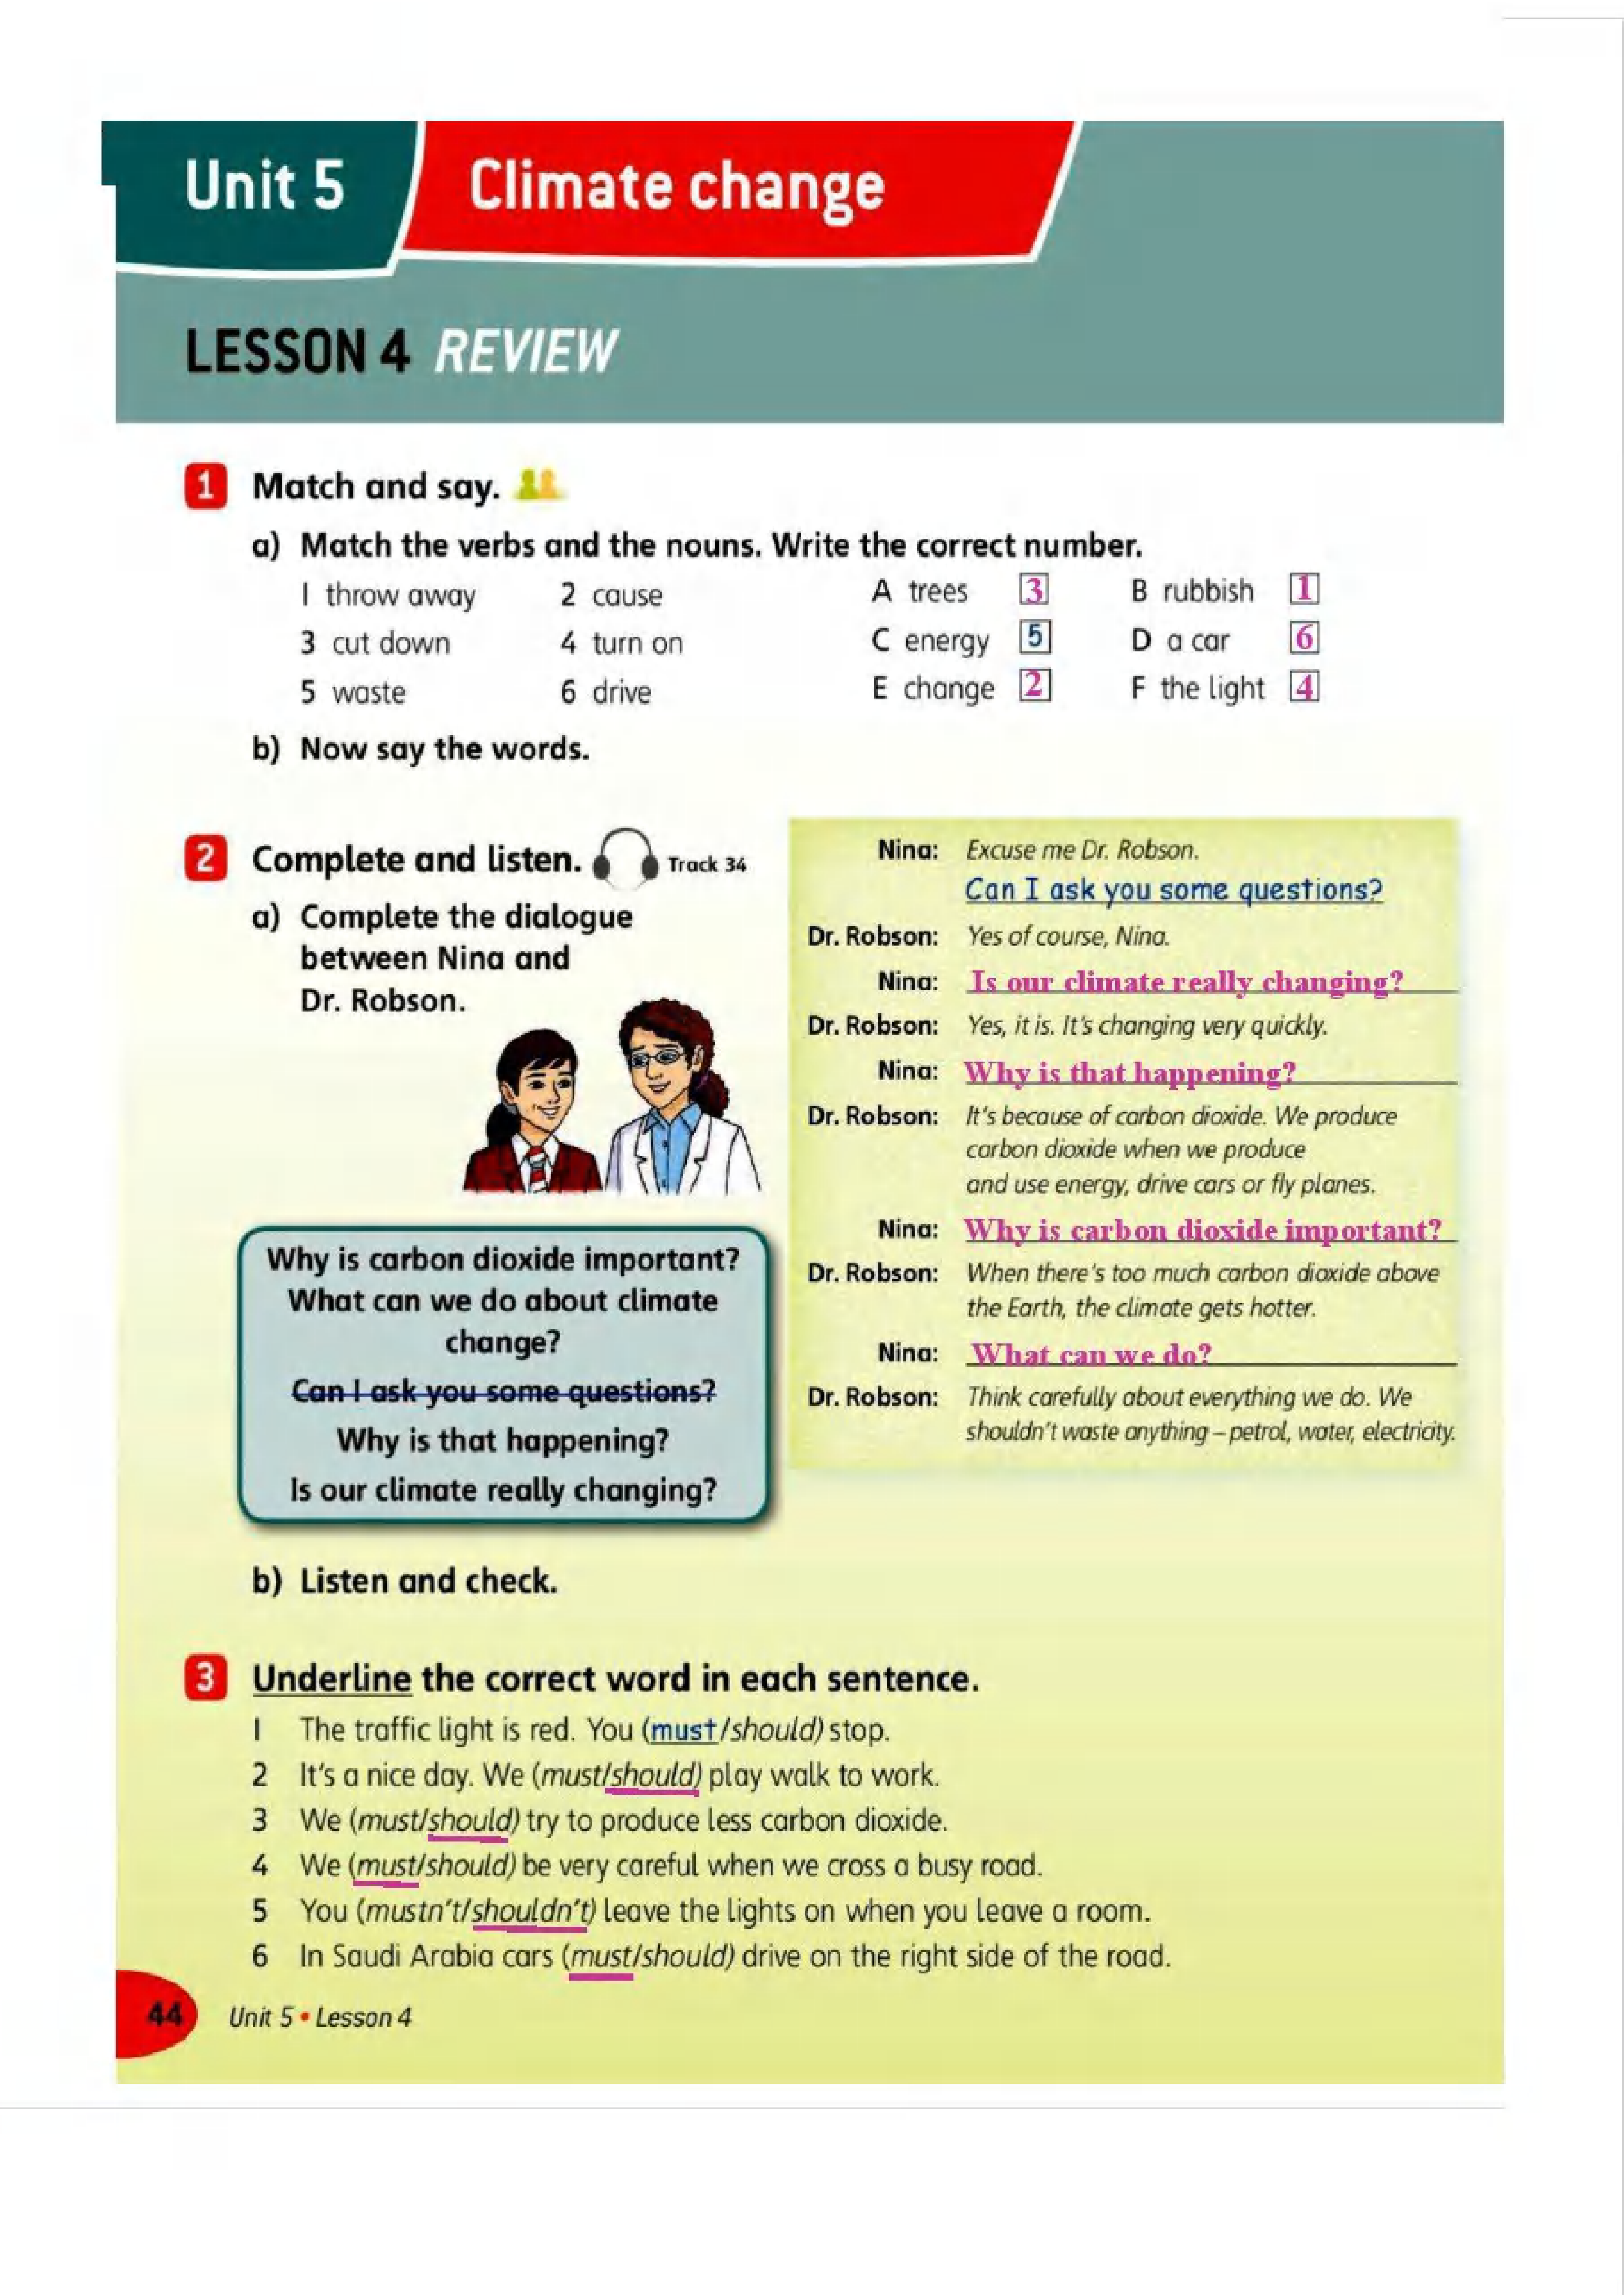 Unit 5 Climate change
LESSON 4 REVIEW
1 Match and say.
a) Match the verbs and the nouns. Write the correct number.
1 throw away 2 cause A trees 3 B rubbish 1
3 cut down 4 turn on C energy 5 D a car 6
5 waste 6 drive E change 2 F the light 4
b) Now say the words.
2 Complete and listen. Track 34
a) Complete the dialogue
between Nina and
Dr. Robson.
Why is carbon dioxide important?
What can we do about climate
change?
Can I ask you some questions?
Why is that happening?
Is our climate really changing?
Nina: Excuse me Dr. Robson.
Can I ask you some questions?
Dr. Robson: Yes of course, Nina.
Nina: Is our climate really changing?
Dr. Robson: Yes, it is. It's changing very quickly.
Nina: Why is that happening?
Dr. Robson: It's because of carbon dioxide. We produce
carbon dioxide when we produce
and use energy, drive cars or fly planes.
Nina: Why is carbon dioxide important?
Dr. Robson: When there's too much carbon dioxide above
the Earth, the climate gets hotter.
Nina: What can we do?
Dr. Robson: Think carefully about everything we do. We
shouldn't waste anything – petrol, water, electricity.
b) Listen and check.
3 Underline the correct word in each sentence.
1 The traffic light is red. You (must/should) stop.
2 It's a nice day. We (must/should) play walk to work.
3 We (must/should) try to produce less carbon dioxide.
4 We (must/should) be very careful when we cross a busy road.
5 You (mustn't/shouldn't) leave the lights on when you leave a room.
6 In Saudi Arabia cars (must/should) drive on the right side of the road.
44 Unit 5 • Lesson 4